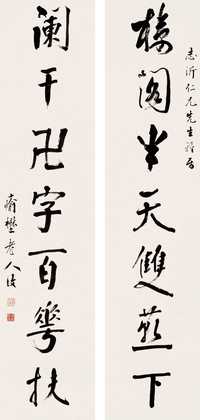 志沂仁兄先生雅屬
樓閣半天雙燕下
闌干卍字百華扶
老人